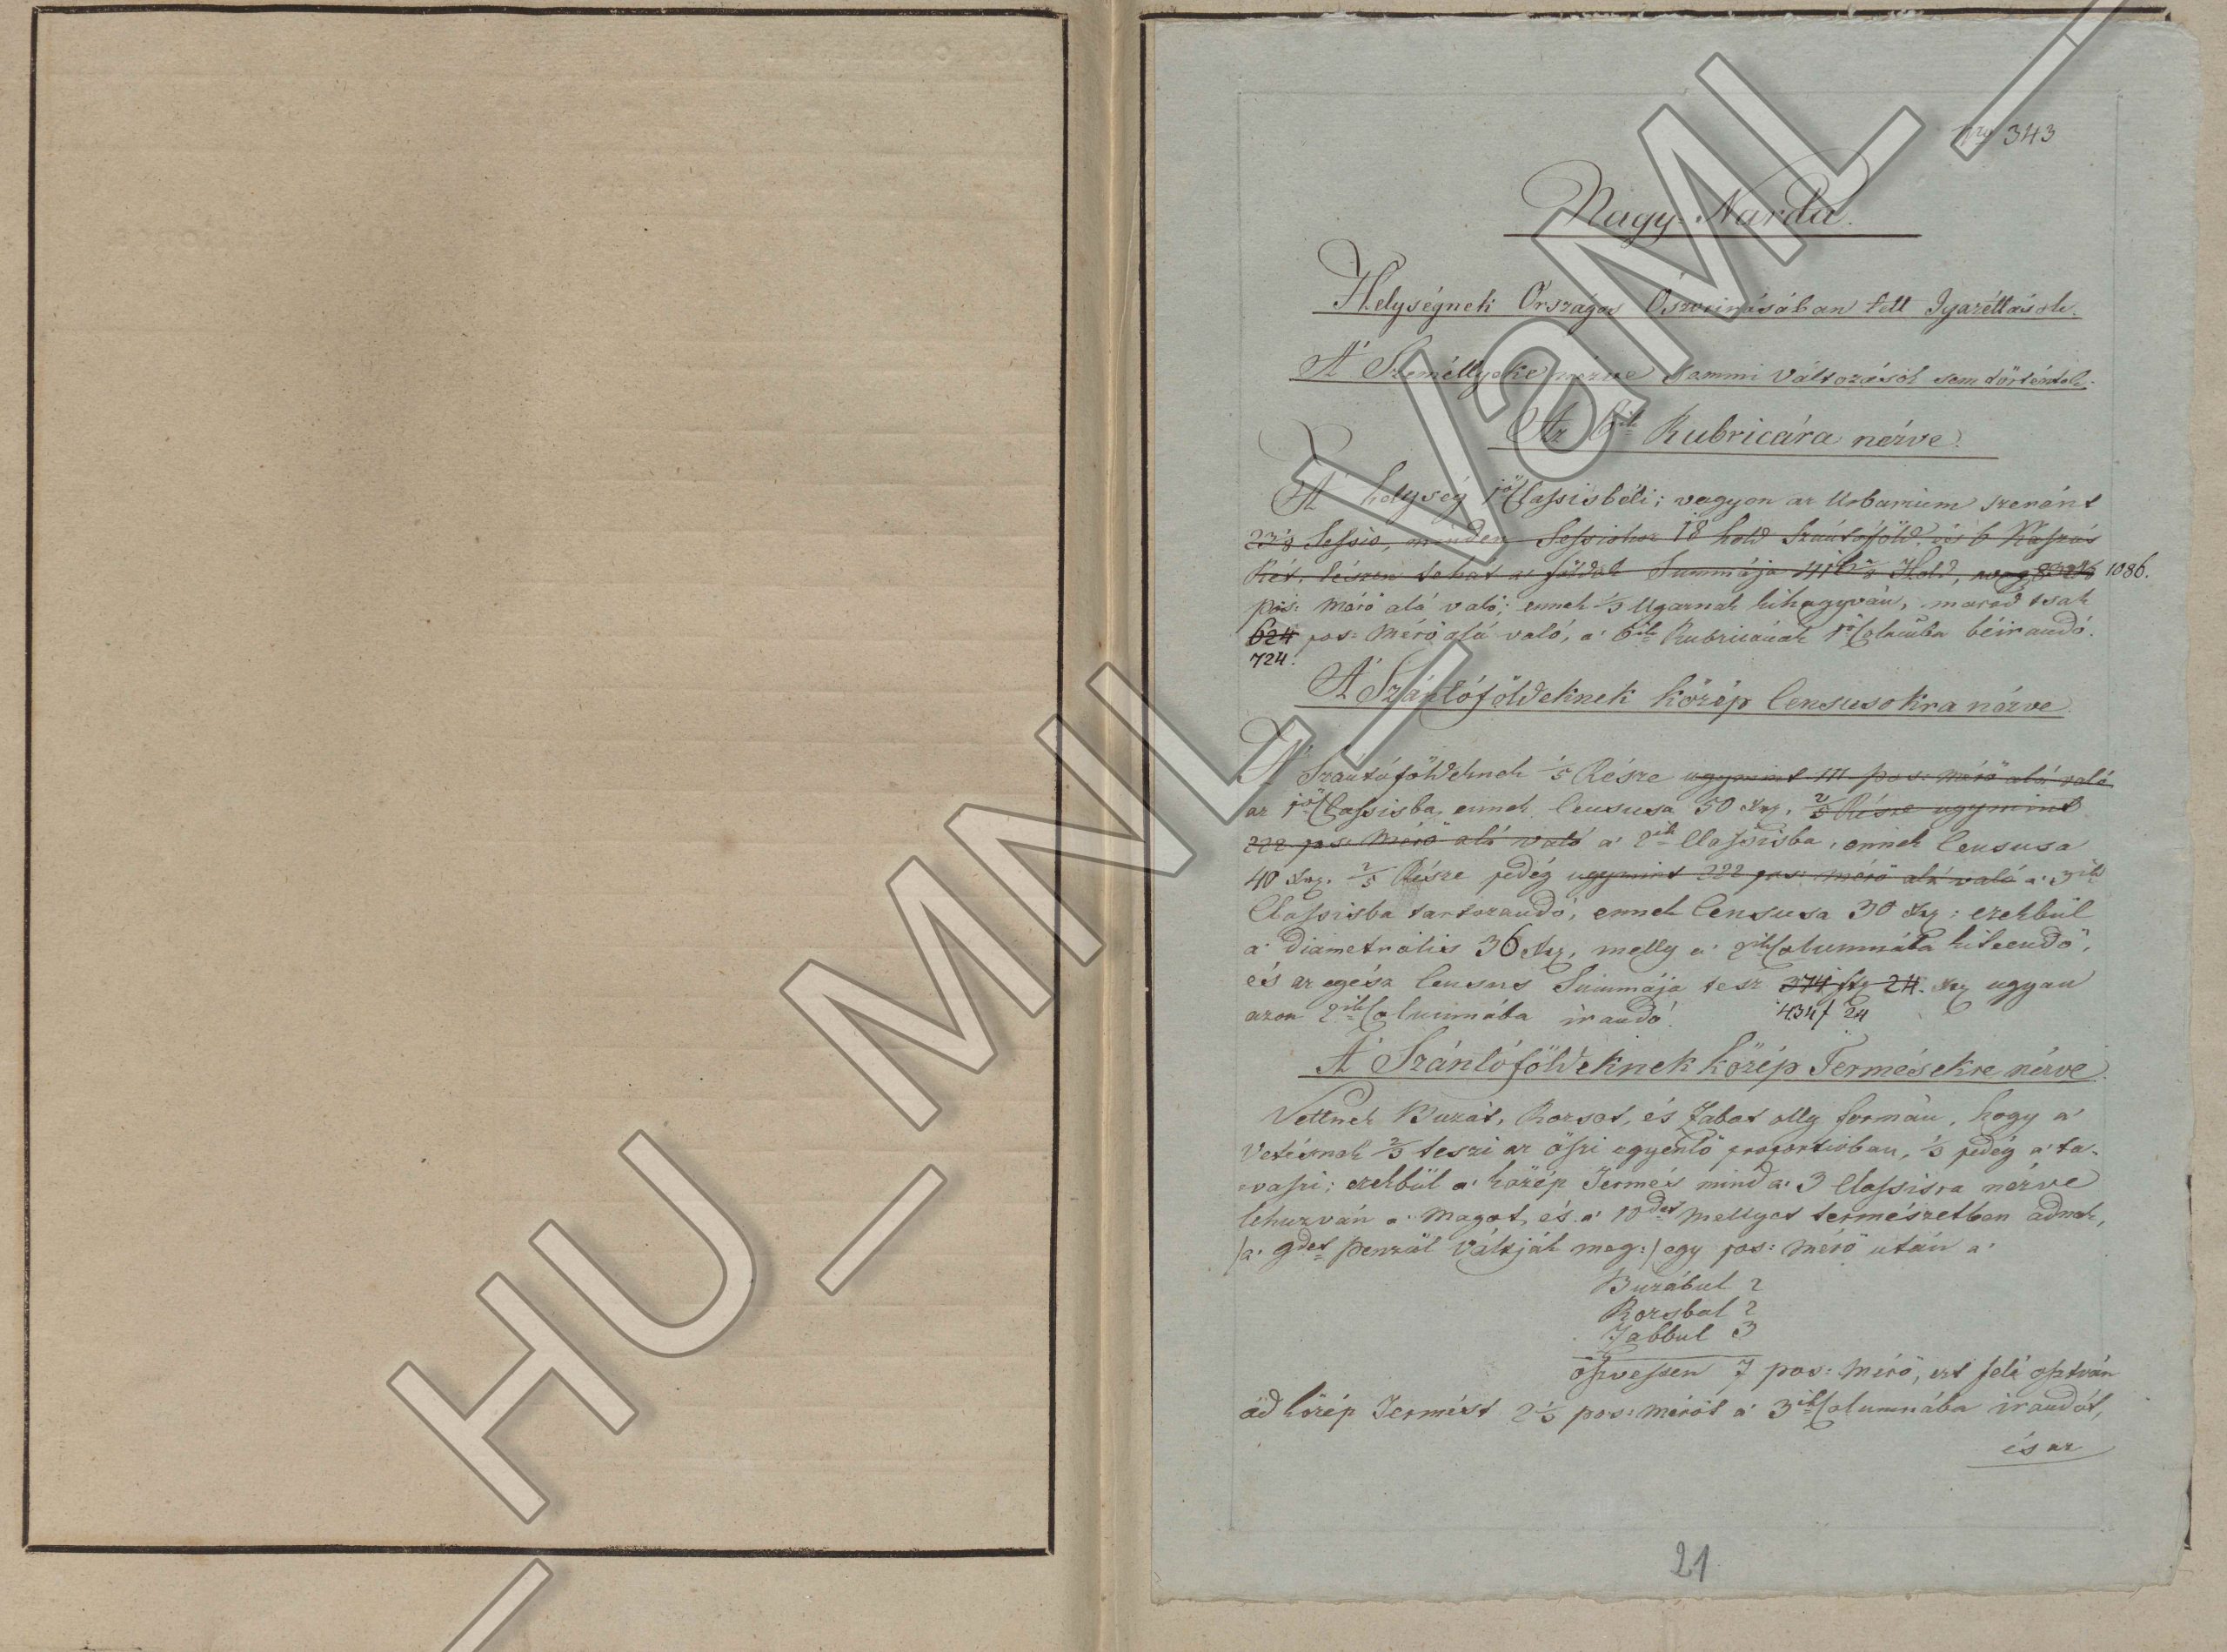 Nro 343
Nagy-Narda.
Helységnek Országos Öszveirásában tett Igazéttások.
A' Személlyekre nézve semmi változások sem történtek.
Az 6ik Rubricára nézve.
A' helység 1ső Classisbéli; vagyon az Urbarium szerént
23 1/8 Sessio, minden Sessiohoz 18 hold Szántóföld és 6 Kaszás
Rét, lészen tehát a' földek Summája 416 2/8 Hold, 1086.
pos: mérő alá való; ennek 1/3 Ugarnak kihagyván, marad tsak
624 pos: mérő alá való, a' 6ik Rubricának 1ső Columba béirandó.
724.
A' Szántóföldeknek közép Censusokra nézve.
A' Szántóföldeknek 1/5 Része ugymint 111 pos: mérő alá való
az 1ső Classisba, ennek Censusa 50 Xrz, 2/5 Része ugymint
222 pos: mérő alá való a' 2ik Classisba, ennek Censusa
40 Xrz. 2/5 Része pedég ugymint 222 pos: mérő alá való a' 3ik
Classisba tartozandó, ennek Censusa 30 Xrz: ezekbül
a' Diametralis 36 Xrz, melly a' 2ik Columnába kiteendő,
és az egész Census Summája tesz 374 f 24. Xrz ugyan
azon 2ik Columnába irandó. 434 f 24
A' Szántóföldeknek közép Termésekre nézve.
Vettnek Buzát, Rozsot, és Zabot olly formán, hogy a'
Vetésnek 2/3 teszi az őszi egyenlő proportioban, 1/3 pedég a' ta-
=vaszi; ezekbül a' közép Termés mind a' 3 Classisra nézve
lehuzván a' Magot, és a' 10det mellyet természetben adnak,
/a' 9det penzül váltják meg:/ egy pos: mérő után a'
Buzábul 2
Rozsbul 2
Zabbul 3
öszvessen 7 pos: mérő, ezt felé osztván
ád közép Termést 2 1/3 pos: mérőt a' 3ik Columnába irandót,
és az
21
HU_MNL_VaML_